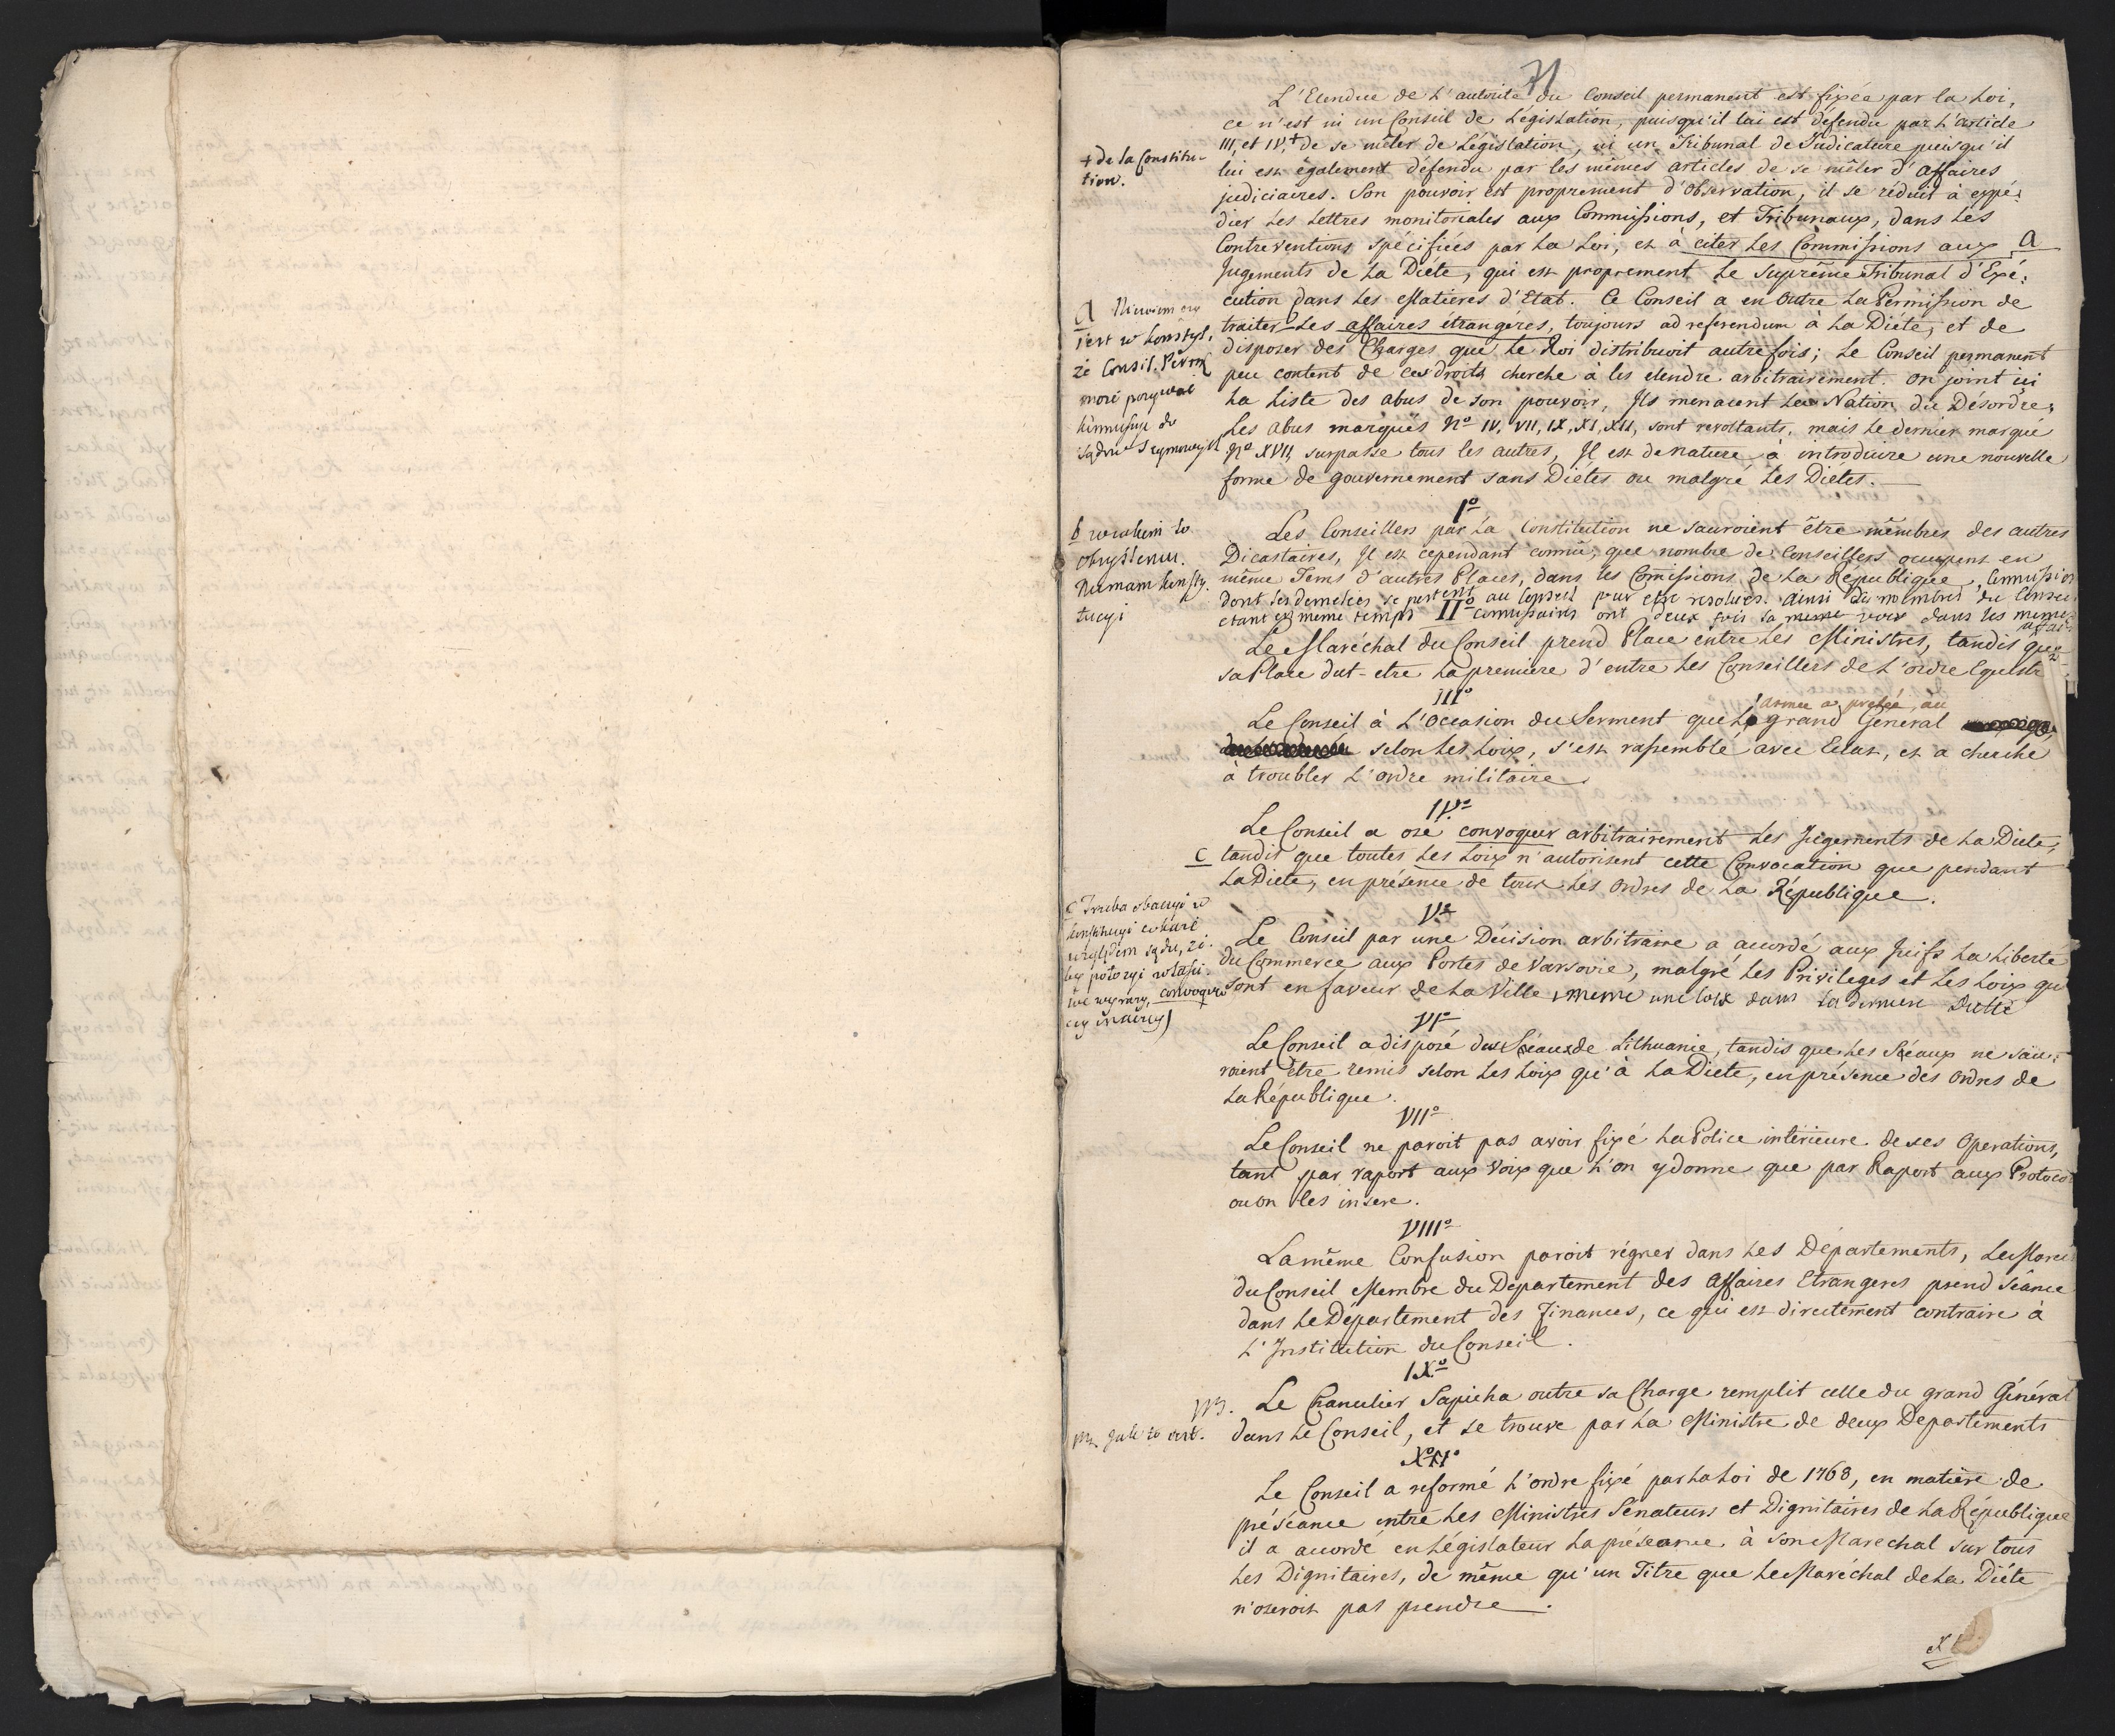 71
L'Etendue de L'autorité du Conseil permanent est fixée par la Loi,
ce n'est ni un Conseil de Législation, puisqu'il lui est défendu par L'article
III, et IV,+ de se mêler de Législation, ni un Tribunal de Judicature puisqu'il
+ de la Constitu-
tion.
lui est également défendu par les mêmes articles de se mêler d'affaires
judiciaires. Son pouvoir est proprement d'Observation, il se réduit à expé:
dier Les Lettres monitoriales aux Commissions, et Tribunaux, dans Les
Contreventions spécifiées par La Loi, et à citer Les Commissions aux a
Jugements de La Diéte, qui est proprement Le Suprême Tribunal d'Exé:
cution dans Les Matieres d'Etat. Ce Conseil a en Outre La Permission de
traiter Les affaires étrangéres, toujours ad referendum à La Diéte, et de
disposer des Charges que Le Roi distribuoit autrefois; Le Conseil permanent
peu content de ces droits cherche à les etendre arbitrairement. On joint ici
La Liste des abus de son pouvoir, Ils menacent La Nation du Désordre,
Les Abus marqués No IV, VII, IX, XI, XII, sont revoltants, mais Le dernier marqué
No XVII, surpasse tous les autres, Il est de nature à introduire une nouvelle
forme de gouvernement sans Diétes ou malgré Les Diétes.
a Niewiem czy
jest w konstyt.
że Consil. Perm
może pozywać
kommissye do
sądow Seymowych
Io
Les Conseillers par La Constitution ne sauroient être mêmbres des autres
Dicastaires, Il est cependant connu, que nombre de Conseillers occupent en
même Tems d'autres Places, dans les Comissions de La République, Commissions
dont les demelées se portent au Conseil pour etre resolues. ainsi les membres du Conseil
etant en meme temps commissaires ont deux fois la meme voix dans les memes
affaires
b
Niemam konsty-
tucyi
IIo
Le Maréchal du Conseil prend Place entre Les Ministres, tandis que
sa Place dut-etre La premiere d'entre Les Conseillers de L'ordre Equestre
IIIo
Le Conseil à L'Occasion du Serment que L'armée a preté, au grand Général
selon Les Loix, s'est rassemblé avec Eclat, et a cherché
à troubler L'Ordre militaire.
IVo
Le Conseil a osé convoquer arbitrairement Les Jugements de La Diete,
c tandis que toutes Les Loix n'autorisent cette Convocation que pendant
La Diete, en présence de tous Les Ordres de La République.
c Trzeba obaczyć w
konstytucyi
względem sądu, że-
by położyć właści-
we wyrazy, convoquer
czy inaczey)
Vo
Le Conseil par une Décision arbitraire a accordé aux Juifs La Liberté
du Commerce aux Portes de Varsovie, malgré Les Privileges et Les Loix qui
sont en faveur de La Ville, meme une loix dans la derniere Diette
VIo
Le Conseil a disposé des Sceaux de Lithuanie, tandis que Les Sceaux ne sau:
roient être remis selon Les Loix qu'à La Diete, en présence des Ordres de
La République.
VIIo
Le Conseil ne paroit pas avoir fixé La Police intérieure de ses Operations,
tant par raport aux Voix que L'on y donne que par Raport aux Protoco
ou on les insere.
VIIIo
La même Confusion paroit régner dans Les Départements, Le Marec
du Conseil Membre du Departement des Affaires Etrangeres prend Séance
dans Le Département des Finances, ce qui est directement contraire à
L'Institution du Conseil.
IXo
Le Chancelier Sapieha outre sa Charge remplit celle du grand Général
dans Le Conseil, et se trouve par La Ministre de deux Departements
Xo
Le Conseil a reformé L'ordre fixé par La Loi de 1768, en matière de
préséance entre Les Ministres Sénateurs et Dignitaires de La République
il a accordé en Législateur La préséance à son Marechal sur tous
Les Dignitaires, de même qu'un Titre que Le Maréchal de La Diéte
n'oseroit pas prendre.